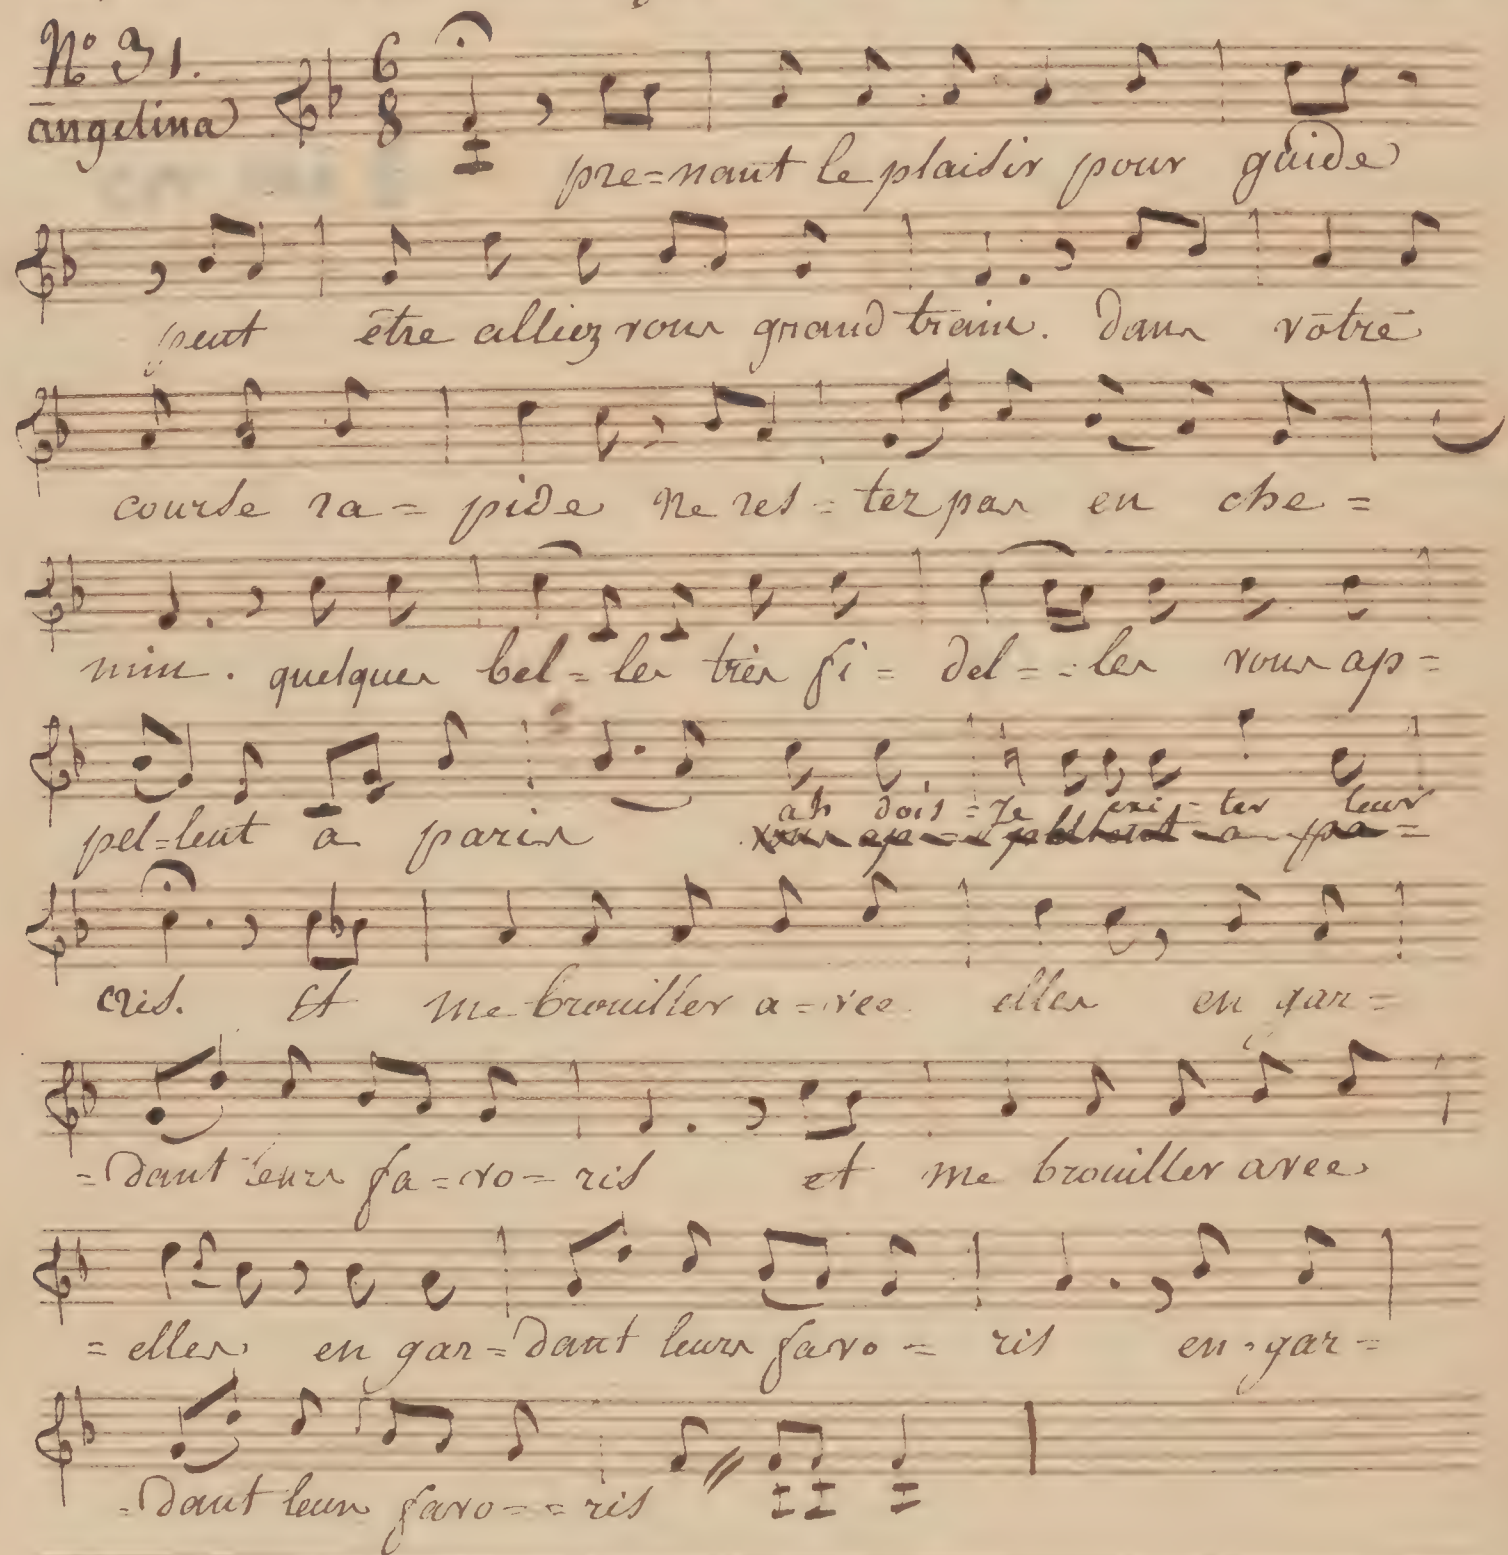 N.o 31.
angelina
6
8
pre=nant le plaisir pour guide
peut être alliez vous grand train. dans vôtre
course ra= pide ne res= tez pas en che=
min. quelques bel=les très fi= del=les vous ap=
ah dois=je exci=ter leur
pel=lent a paris vous ap=pellent a pa=
cris. Et me brouiller a=vec elles en gar=
=dant leurs fa=vo=ris et me brouiller avec
=elles en gar=dant leurs favo= ris en gar=
=dant leurs favo==ris